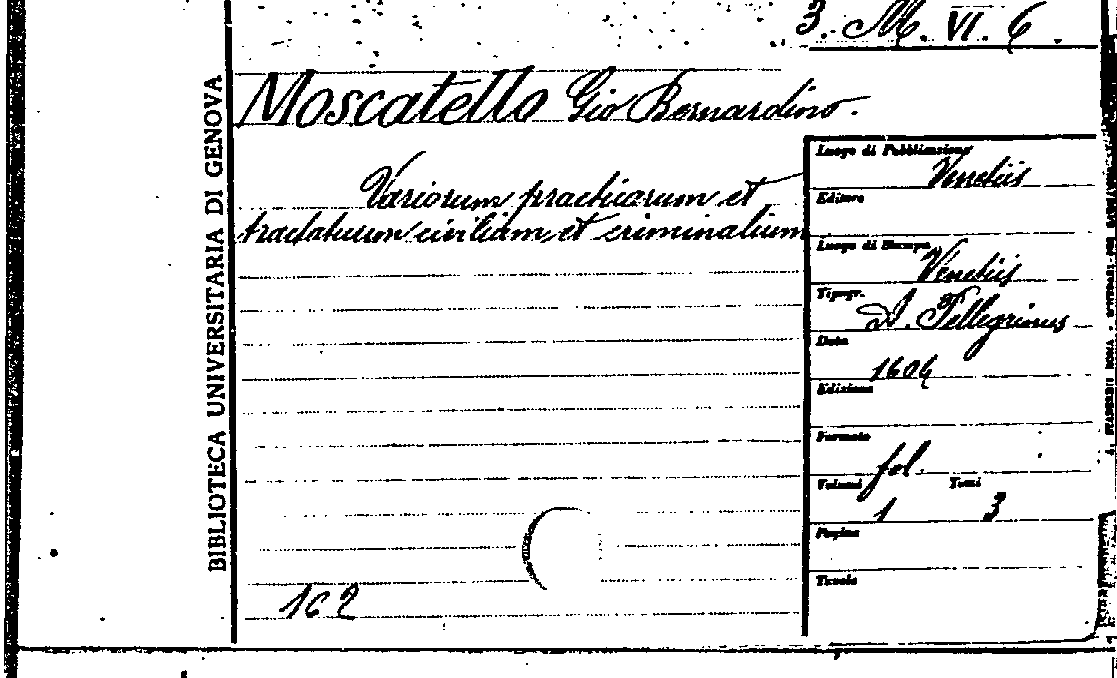 3. M. VI. 6.
BIBLIOTECA UNIVERSITARIA DI GENOVA
Moscatello Gio Bernardino.
Variorum practicarum et
tractatuum civilium et criminalium
Luogo di Pubblicazione
Venetiis
Editore
Luogo di Stampa
Venetiis
Tipogr.
D. Pellegrinus
Data
1604
Edizione
Formato
fol.
Volumi Tomi
1 3
Pagine
Tavole
162